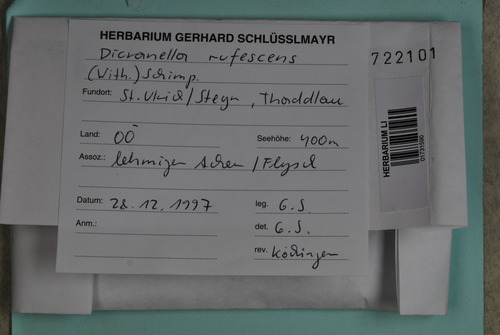 HERBARIUM GERHARD SCHLÜSSLMAYR
Dicranella rufescens
(With.) Schimp.
Fundort: St. Ulrich/Steyr,
Land: OÖ Seehöhe: 400m
Assoz.: lehmiger Acker/Flysch
Datum: 28.12.1997 leg. G.S.
Anm.: det. G.S.
rev. Köckinger
722101
HERBARIUM LI
01731590